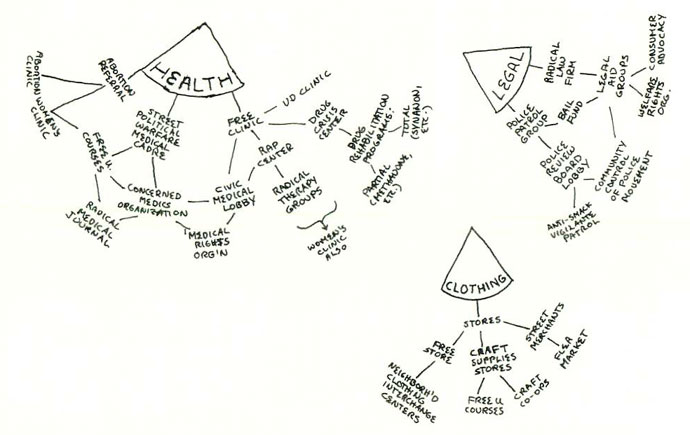 HEALTH
ABORTION
REFERRAL
ABORTION
CLINIC
WOMEN'S
CLINIC
FREE U.
COURSES
STREET
POLITICAL
WARFARE
MEDICAL
CADRE
CONCERNED
MEDICS
ORGANIZATION
RADICAL
MEDICAL
JOURNAL
MEDICAL
RIGHTS
ORG'N
CIVIC
MEDICAL
LOBBY
FREE
CLINIC
VD CLINIC
DRUG
CRISIS
CENTER
RAP
CENTER
RADICAL
THERAPY
GROUPS
WOMEN'S
CLINIC
ALSO
DRUG
REHABILITATION
PROGRAMS:
TOTAL
(SYNANON,
ETC.)
PARTIAL
(METHADONE,
ETC.)
LEGAL
RADICAL
LAW
FIRM
LEGAL
AID
GROUPS
CONSUMER
ADVOCACY
WELFARE
RIGHTS
ORG.
BAIL
FUND
POLICE
PATROL
GROUP
POLICE
REVIEW
BOARD
LOBBY
COMMUNITY
CONTROL
OF POLICE
MOVEMENT
ANTI-SMACK
VIGILANTE
PATROL
CLOTHING
STORES
FREE
STORE
NEIGHBORH'D
CLOTHING
INTERCHANGE
CENTERS
CRAFT
SUPPLIES
STORES
FREE U
COURSES
CRAFT
CO-OPS
STREET
MERCHANTS
FLEA
MARKET